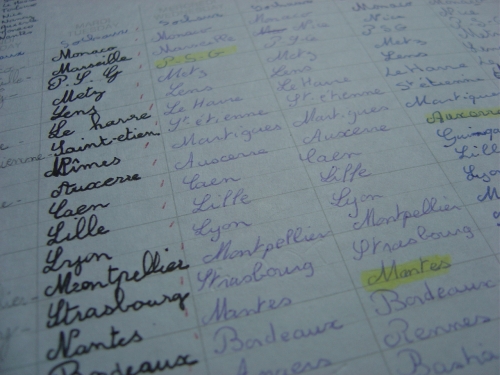 Sochaux Monaco Sochaux Monaco
Monaco Marseille Monaco Nice
Marseille P-S-G Nice P S G
P. S. G Metz P-S-G Metz
Metz Lens Metz Lens
Lens Le Havre Lens Le Havre
Le havre St étienne Le Havre St étienne
Saint-etien Martigues St. étienne Martigues
Nîmes Auxerre Martigues Auxerre
Auxerre Caen Auxerre Guingamp
Caen Lille Caen Lille
Lille Lyon Lille Lyon
Lyon Montpellier Lyon
Montpellier Strasbourg Montpellier
Strasbourg Nantes Strasbourg
Nantes Bordeaux Nantes
Bordeaux Angers Bordeaux
Rennes
Bastia